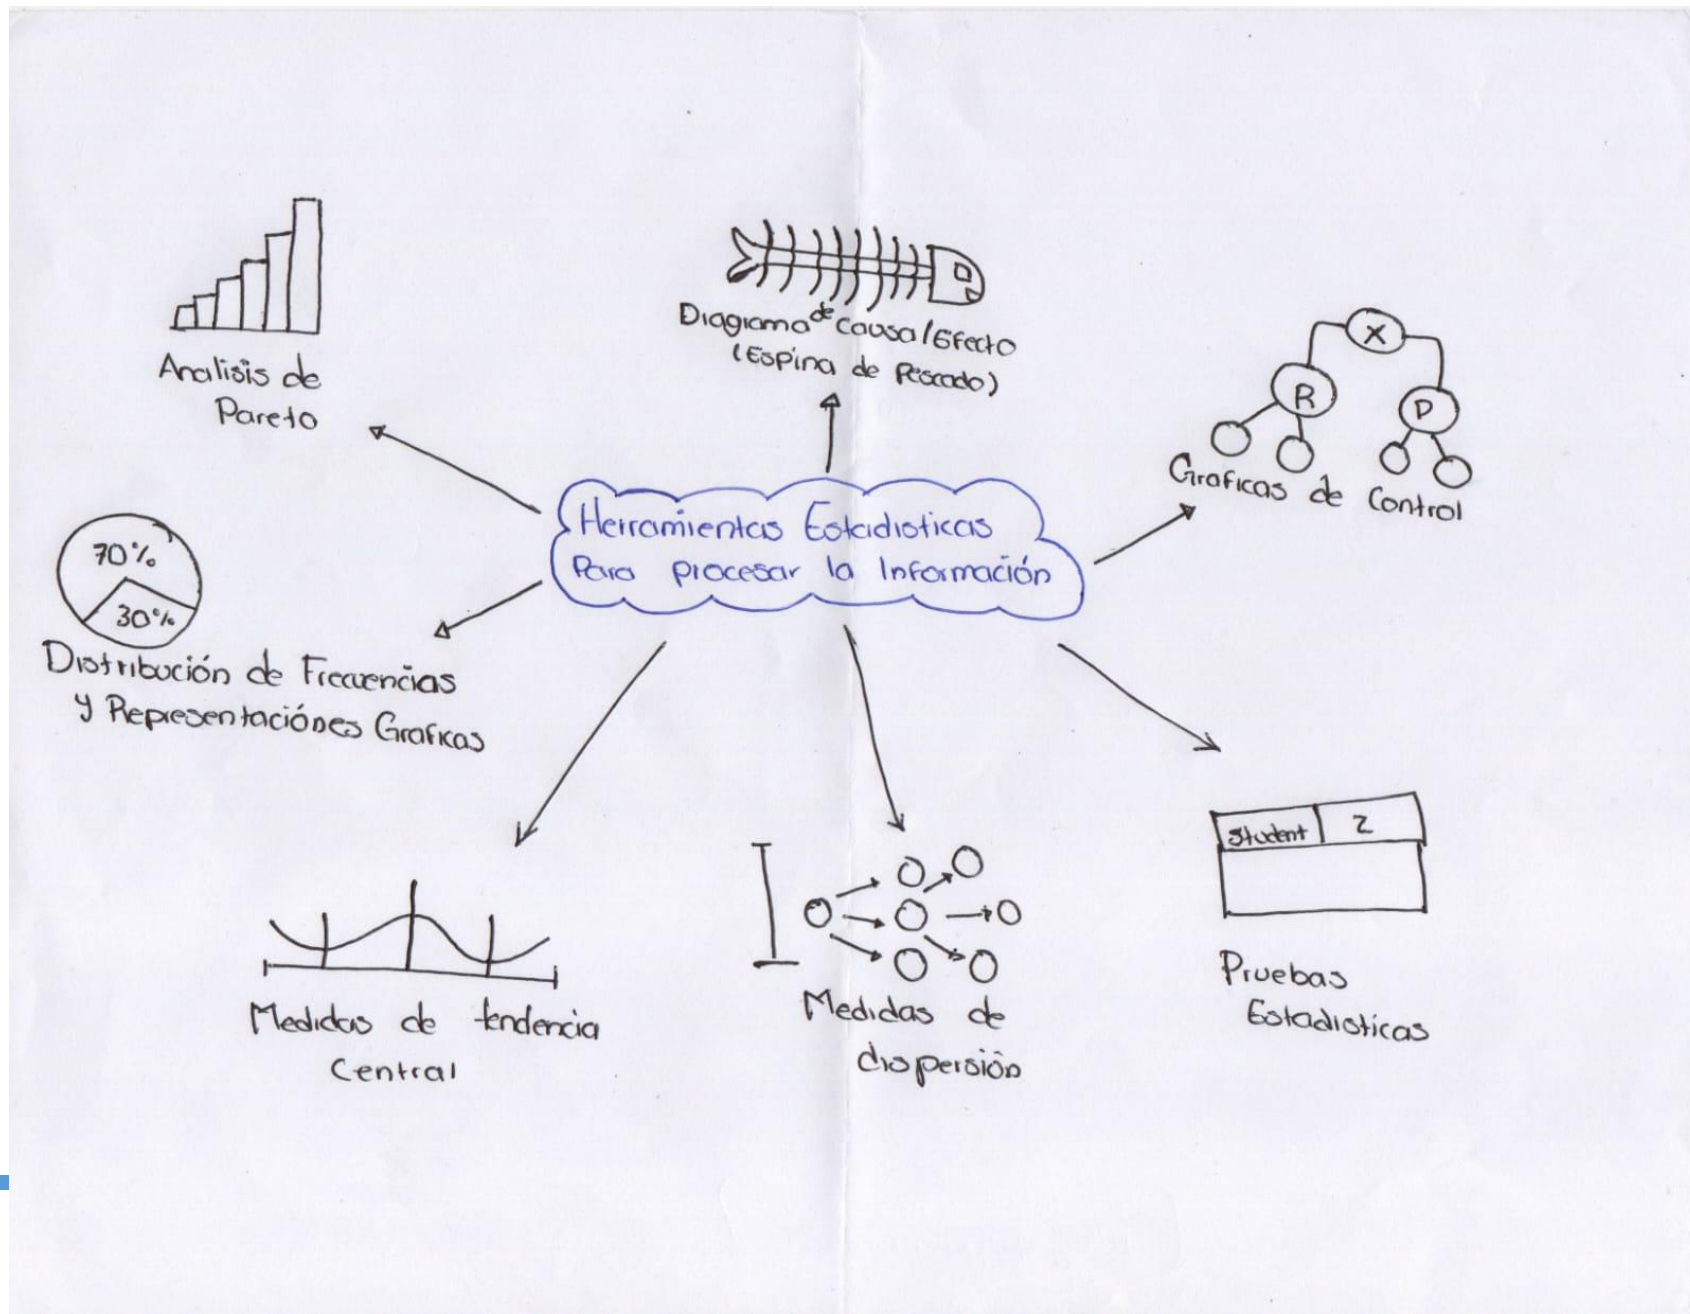 Diagrama de Causa/Efecto
(Espina de Pescado)
X
R
P
Graficas de Control
Analisis de
Pareto
Herramientas Estadisticas
Para procesar la Información
70%
30%
Distribución de Frecuencias
y Representaciónes Graficas
Student
Z
Medidas de tendencia
Central
Medidas de
dispersión
Pruebas
Estadisticas